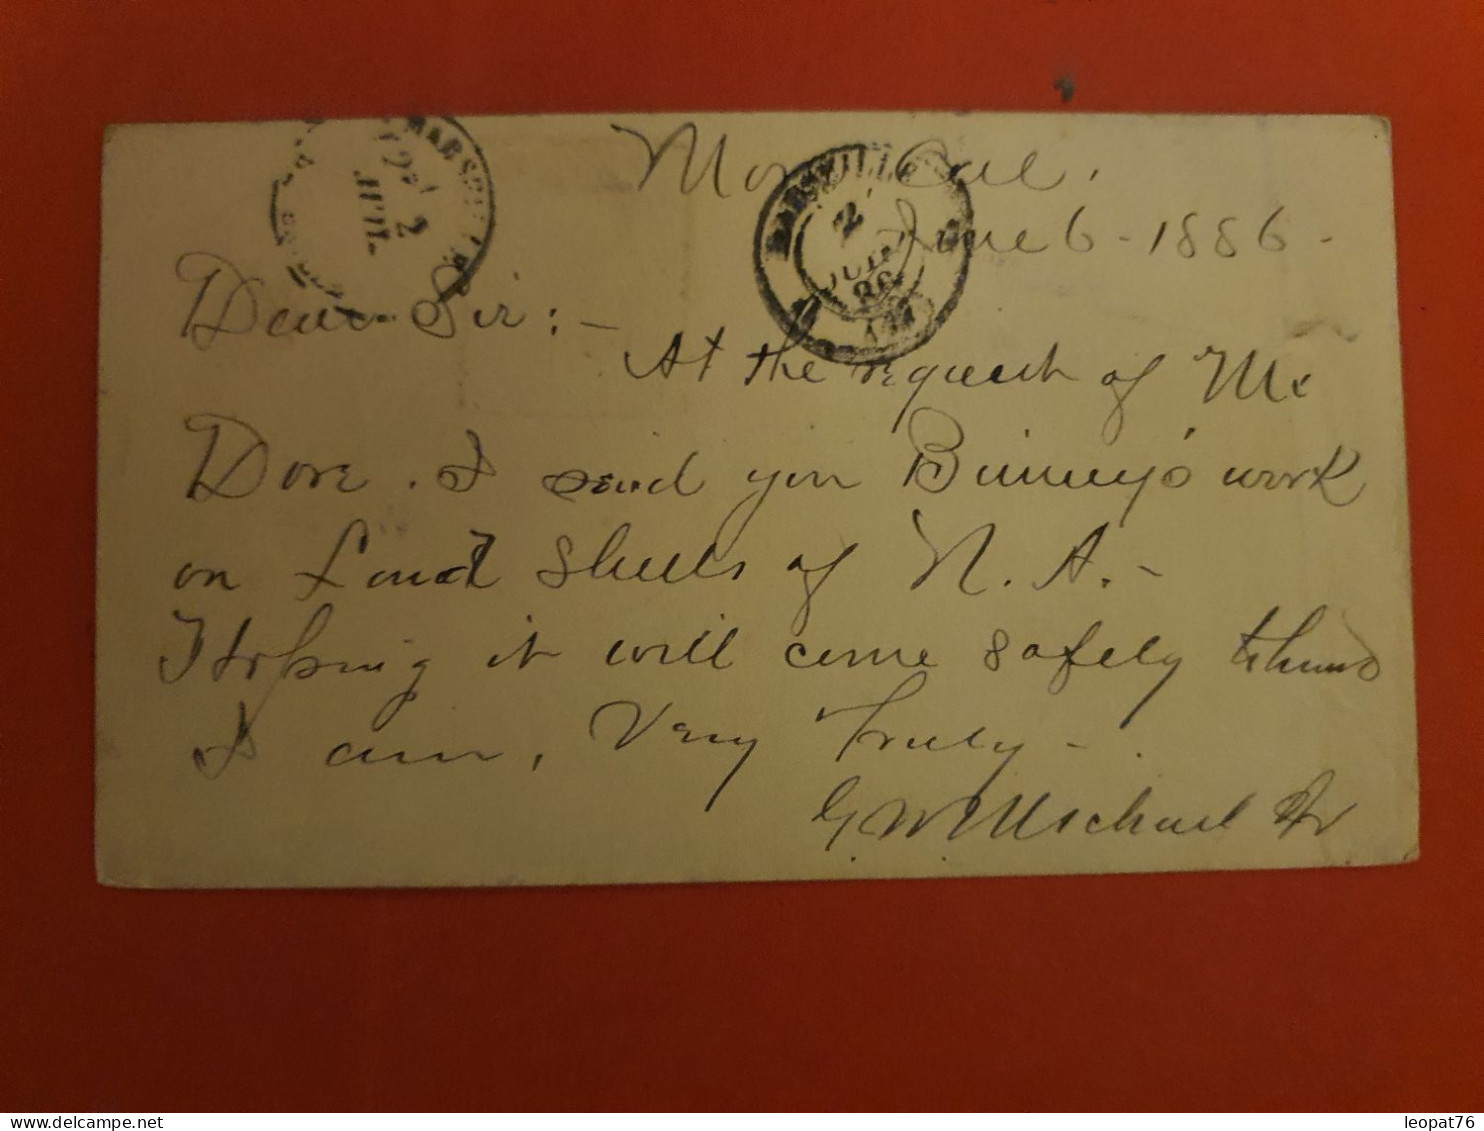 Cal.
June 6 - 1886 -
Dear Sir : -
At the request of Mr
Dore . I send you Binney's work
on Land Shells of N. A. -
Hoping it will come safely
I am , Very Truly -
G. W. Michael Jr
MARSEILLE
2
JUIL
MARSEILLE
2
JUIL
86
leopat76